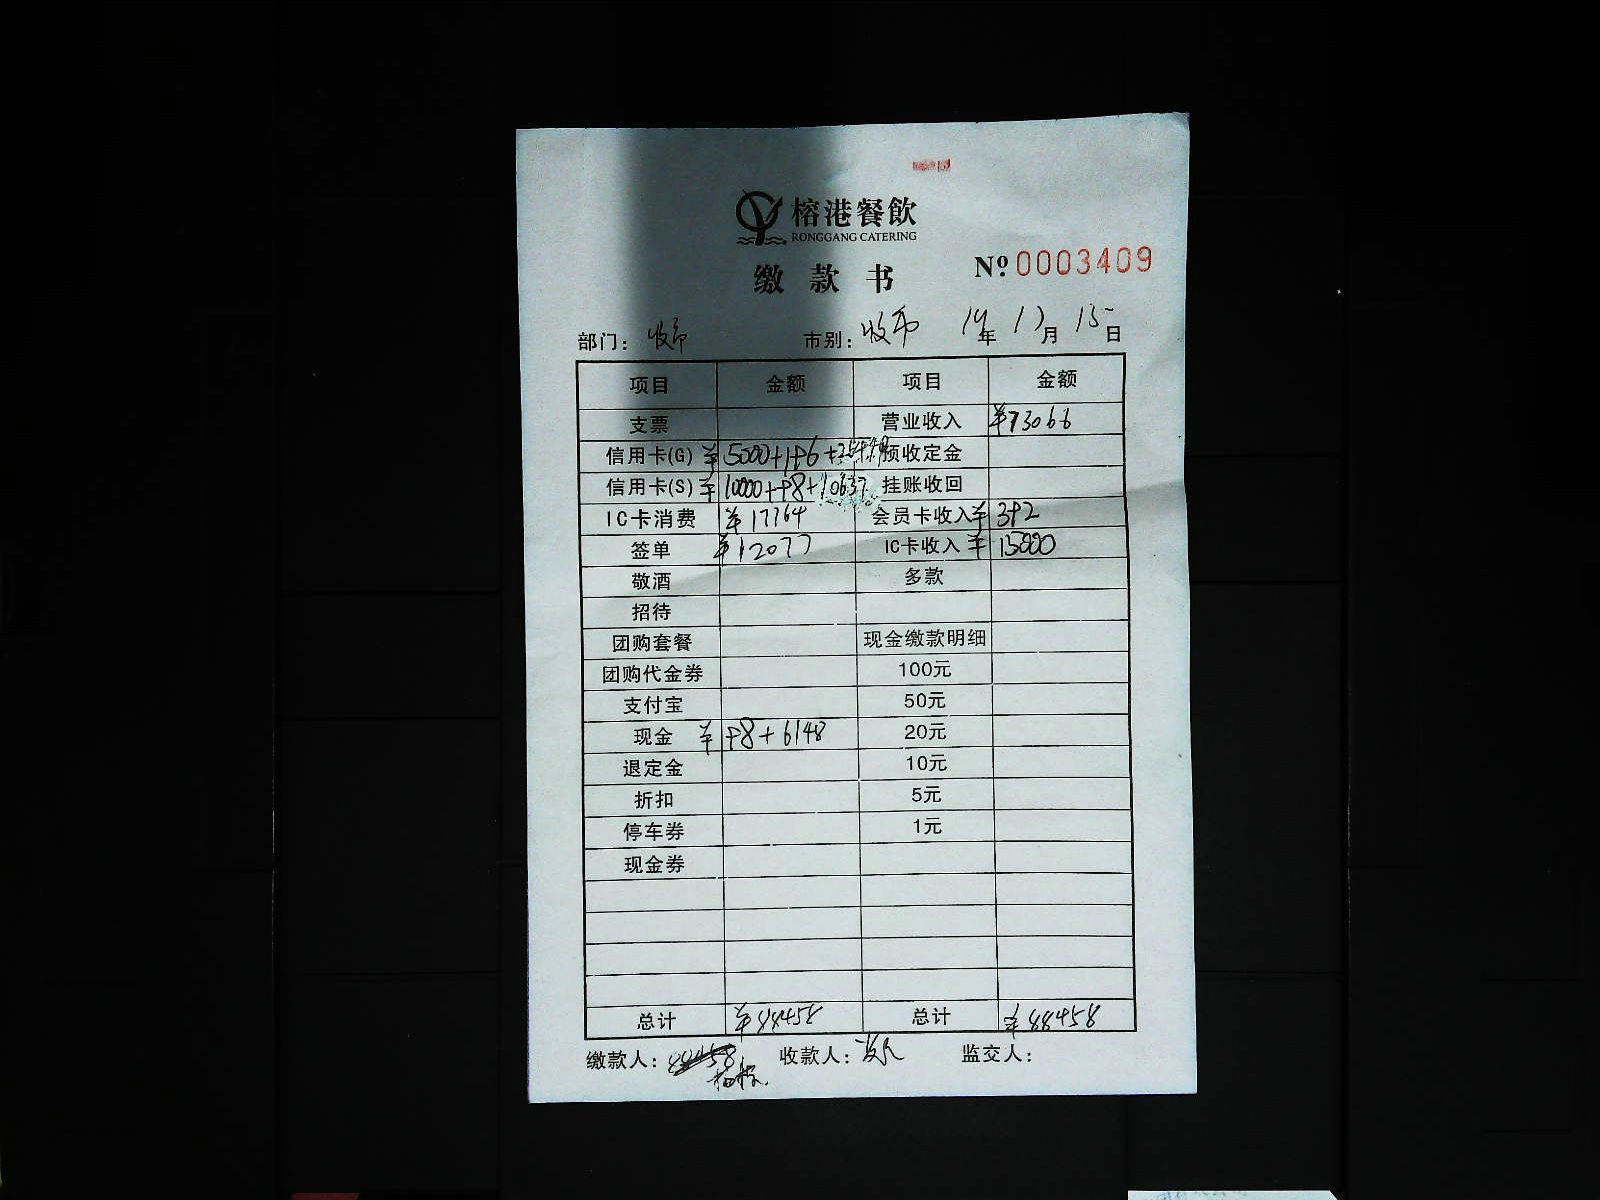 榕港餐飲
RONGGANG CATERING
缴款书
Nº 0003409
部门：收市 市别：收市 年 月 15日
项目 金额 项目 金额
支票 营业收入 ¥73066
信用卡(G) ¥5000+196+ 预收定金
信用卡(S) ¥10000+98+10637 挂账收回
IC卡消费 ¥17764 会员卡收入 ¥392
签单 ¥12077 IC卡收入 ¥15000
敬酒 多款
招待
团购套餐 现金缴款明细
团购代金券 100元
支付宝 50元
现金 ¥98+6148 20元
退定金 10元
折扣 5元
停车券 1元
现金券
总计 ¥88458 总计 ¥88458
缴款人： 收款人： 监交人：